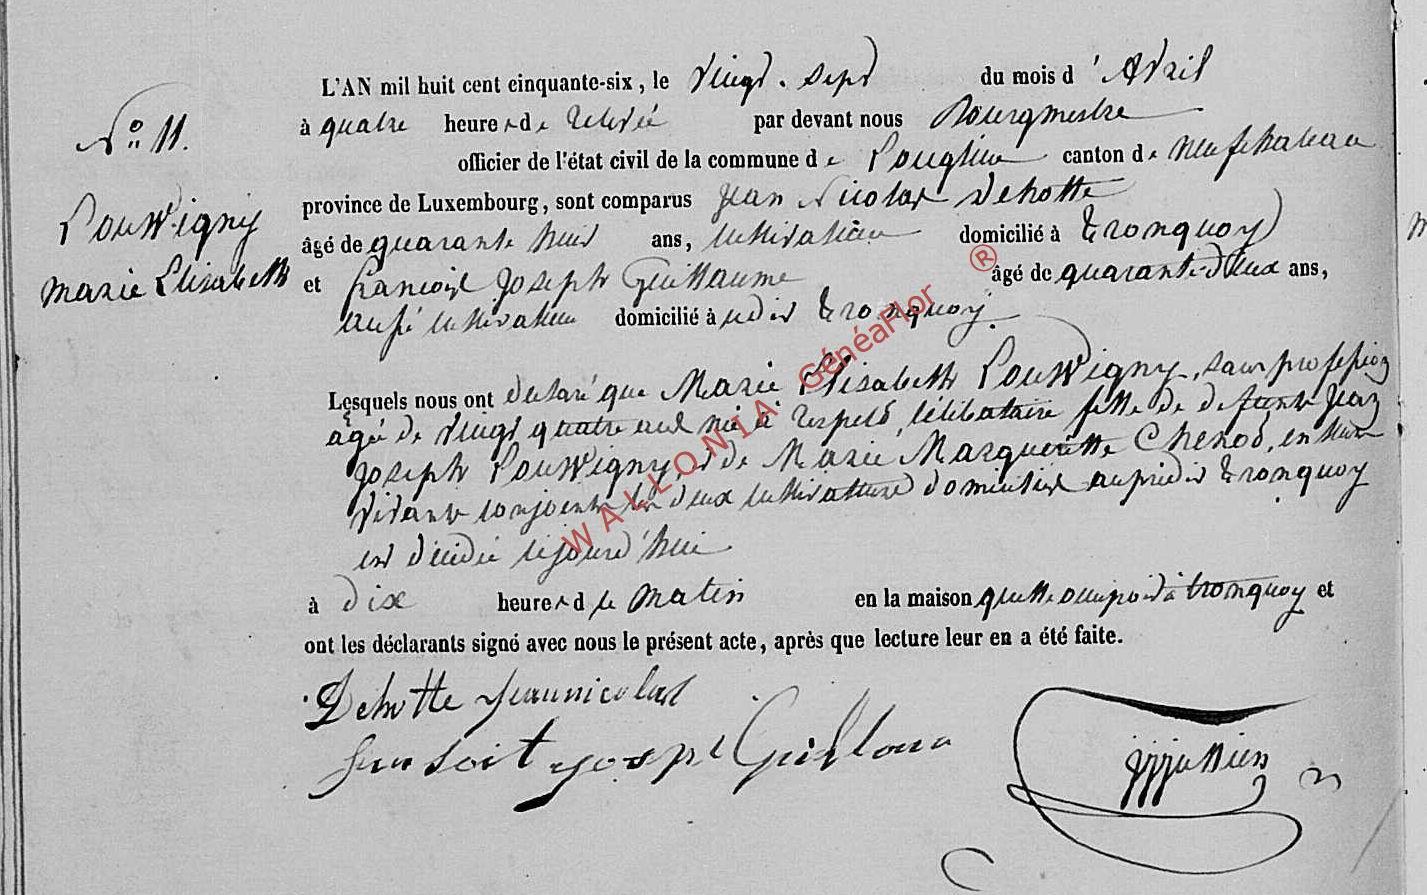 L'AN mil huit cent cinquante-six, le vingt-sept du mois d'Avril
N° 11.
à quatre heures de relevée par devant nous Bourgmestre
officier de l'état civil de la commune de Longlier canton de Neufchateau
Louvigny
province de Luxembourg, sont comparus Jean Nicolas Dehotte
âgé de quarante huit ans, cultivateur domicilié à Tronquoy
Marie Elisabeth
et François Joseph Guillaume âgé de quarante-deux ans,
aussi cultivateur domicilié audit Tronquoy.
Lesquels nous ont déclaré que Marie Elisabeth Louvigny, sans profession
agée de vingt quatre ans née à Respelt, célibataire fille de defunts Jean
Joseph Louvigny, et de Marie Marguerite Chenot, en leur
vivant conjoints les deux cultivateurs domiciliés au prédit Tronquoy
est décédée cejourd'hui
à dix heures du matin en la maison qu'elle occupoit à tronquoy et
ont les déclarants signé avec nous le présent acte, après que lecture leur en a été faite.
Dehotte jeannicolas
joseph
WALLONIA GénéaFlor ®